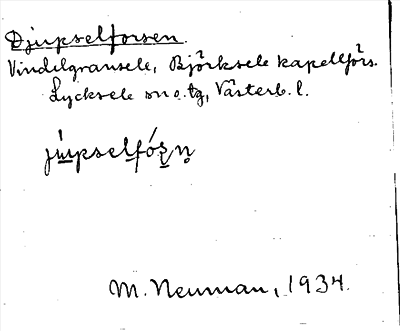 Djupselforsen.
Vindelgransele, Björksele kapellförs.
Lycksele sn o. tg, Västerb. l.
júpselfóṣṇ
M. Neuman, 1934.